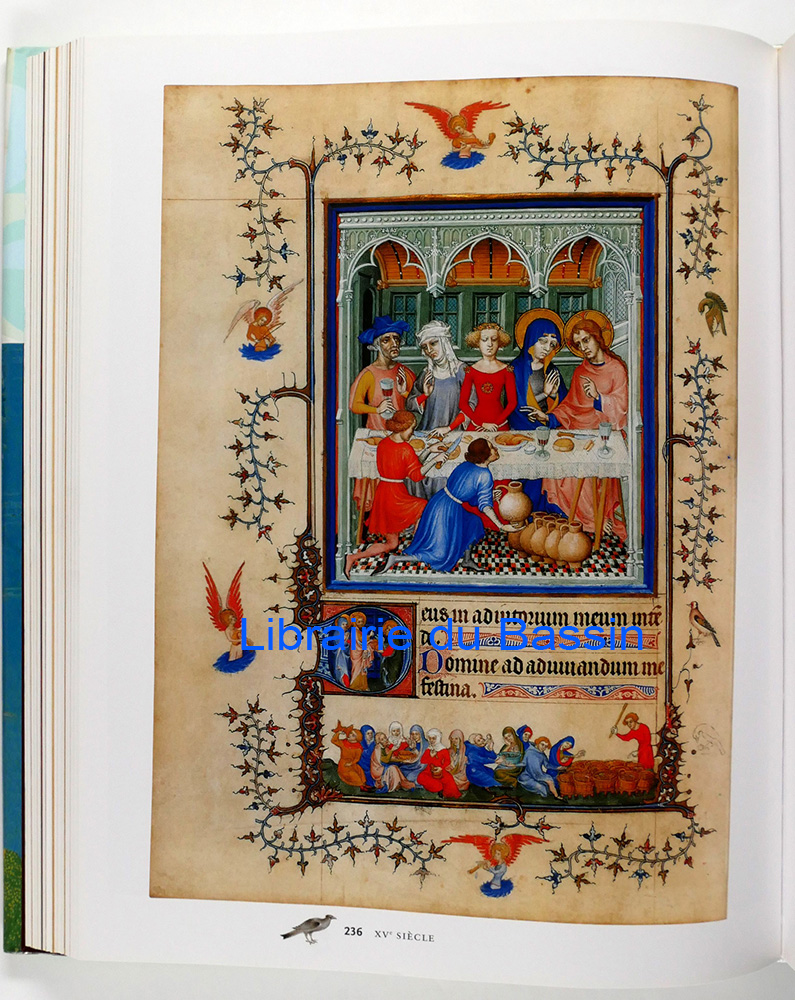 Deus in adiutorium meum inte
de
Domine ad adiuuandum me
festina.
Librairie du Bassin
236 XVe SIÈCLE